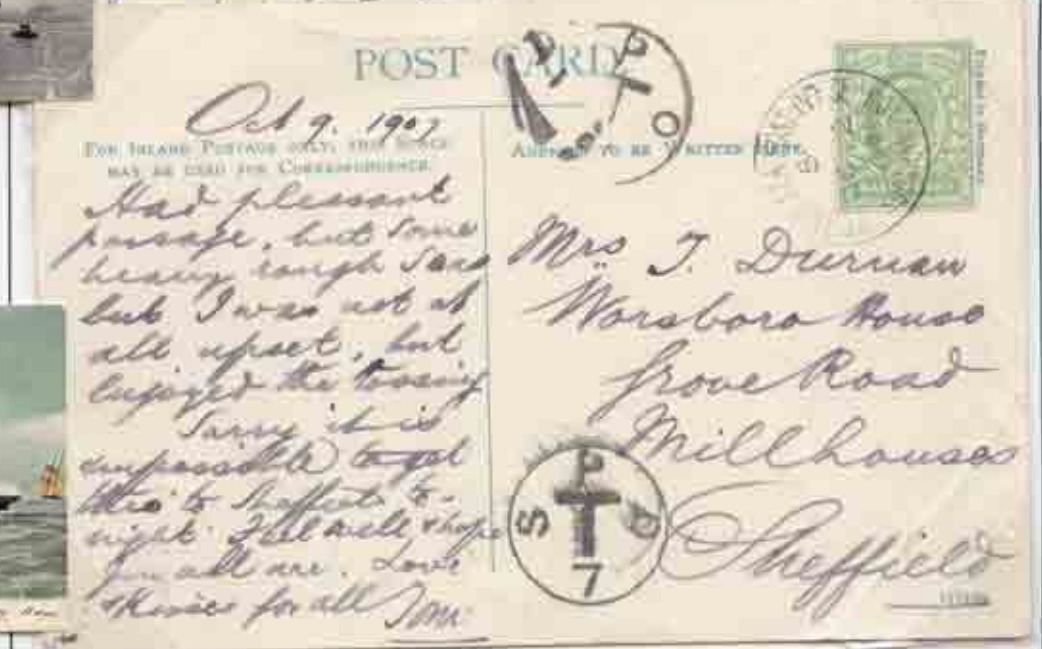 POST CARD
Oct 9. 1907
FOR INLAND POSTAGE ONLY, THIS SPACE
MAY BE USED FOR CORRESPONDENCE.
ADDRESS TO BE WRITTEN HERE.
Had pleasant
passage, but some
heavy rough seas
but I was not at
all upset, but
enjoyed the tossing
Sorry it is
impossible to get
this to Sheffield to-
night. Feel well & hope
you all are. Love
& Kisses for all Tom.
Mrs T. Durnan
Worsboro House
Grove Road
Millhouses
Sheffield
P
S T O
7